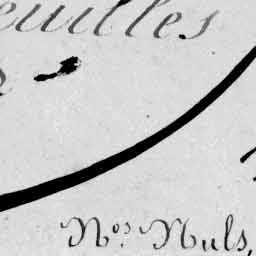 euilles
Nos. Nuls,